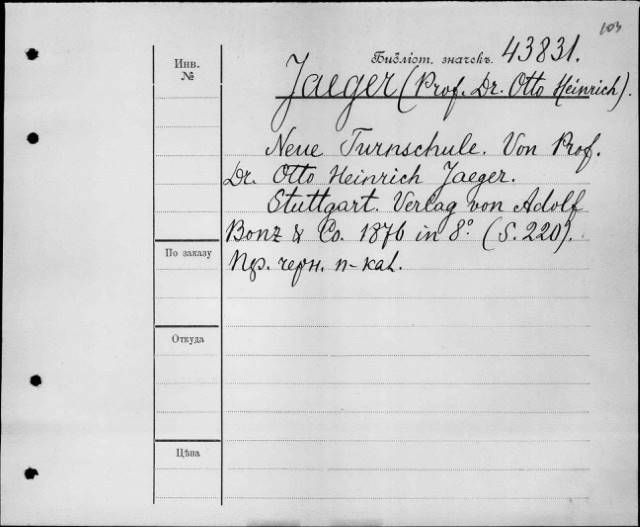 103
Библіот. значекъ 43831.
Инв.
№
Jaeger (Prof. Dr. Otto Heinrich).
Neue Turnschule. Von Prof.
Dr. Otto Heinrich Jaeger.
Stuttgart. Verlag von Adolf
Bonz & Co. 1876 in 8° (S. 220).
По заказу
Пр. черн. п-кал.
Откуда
Цѣна